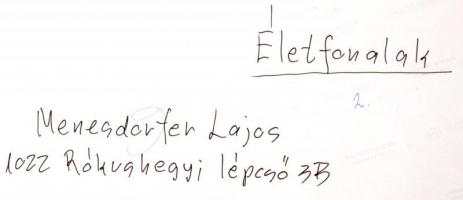 Életfonalak
2.
Menesdorfer Lajos
1022 Rókushegyi lépcső 3B